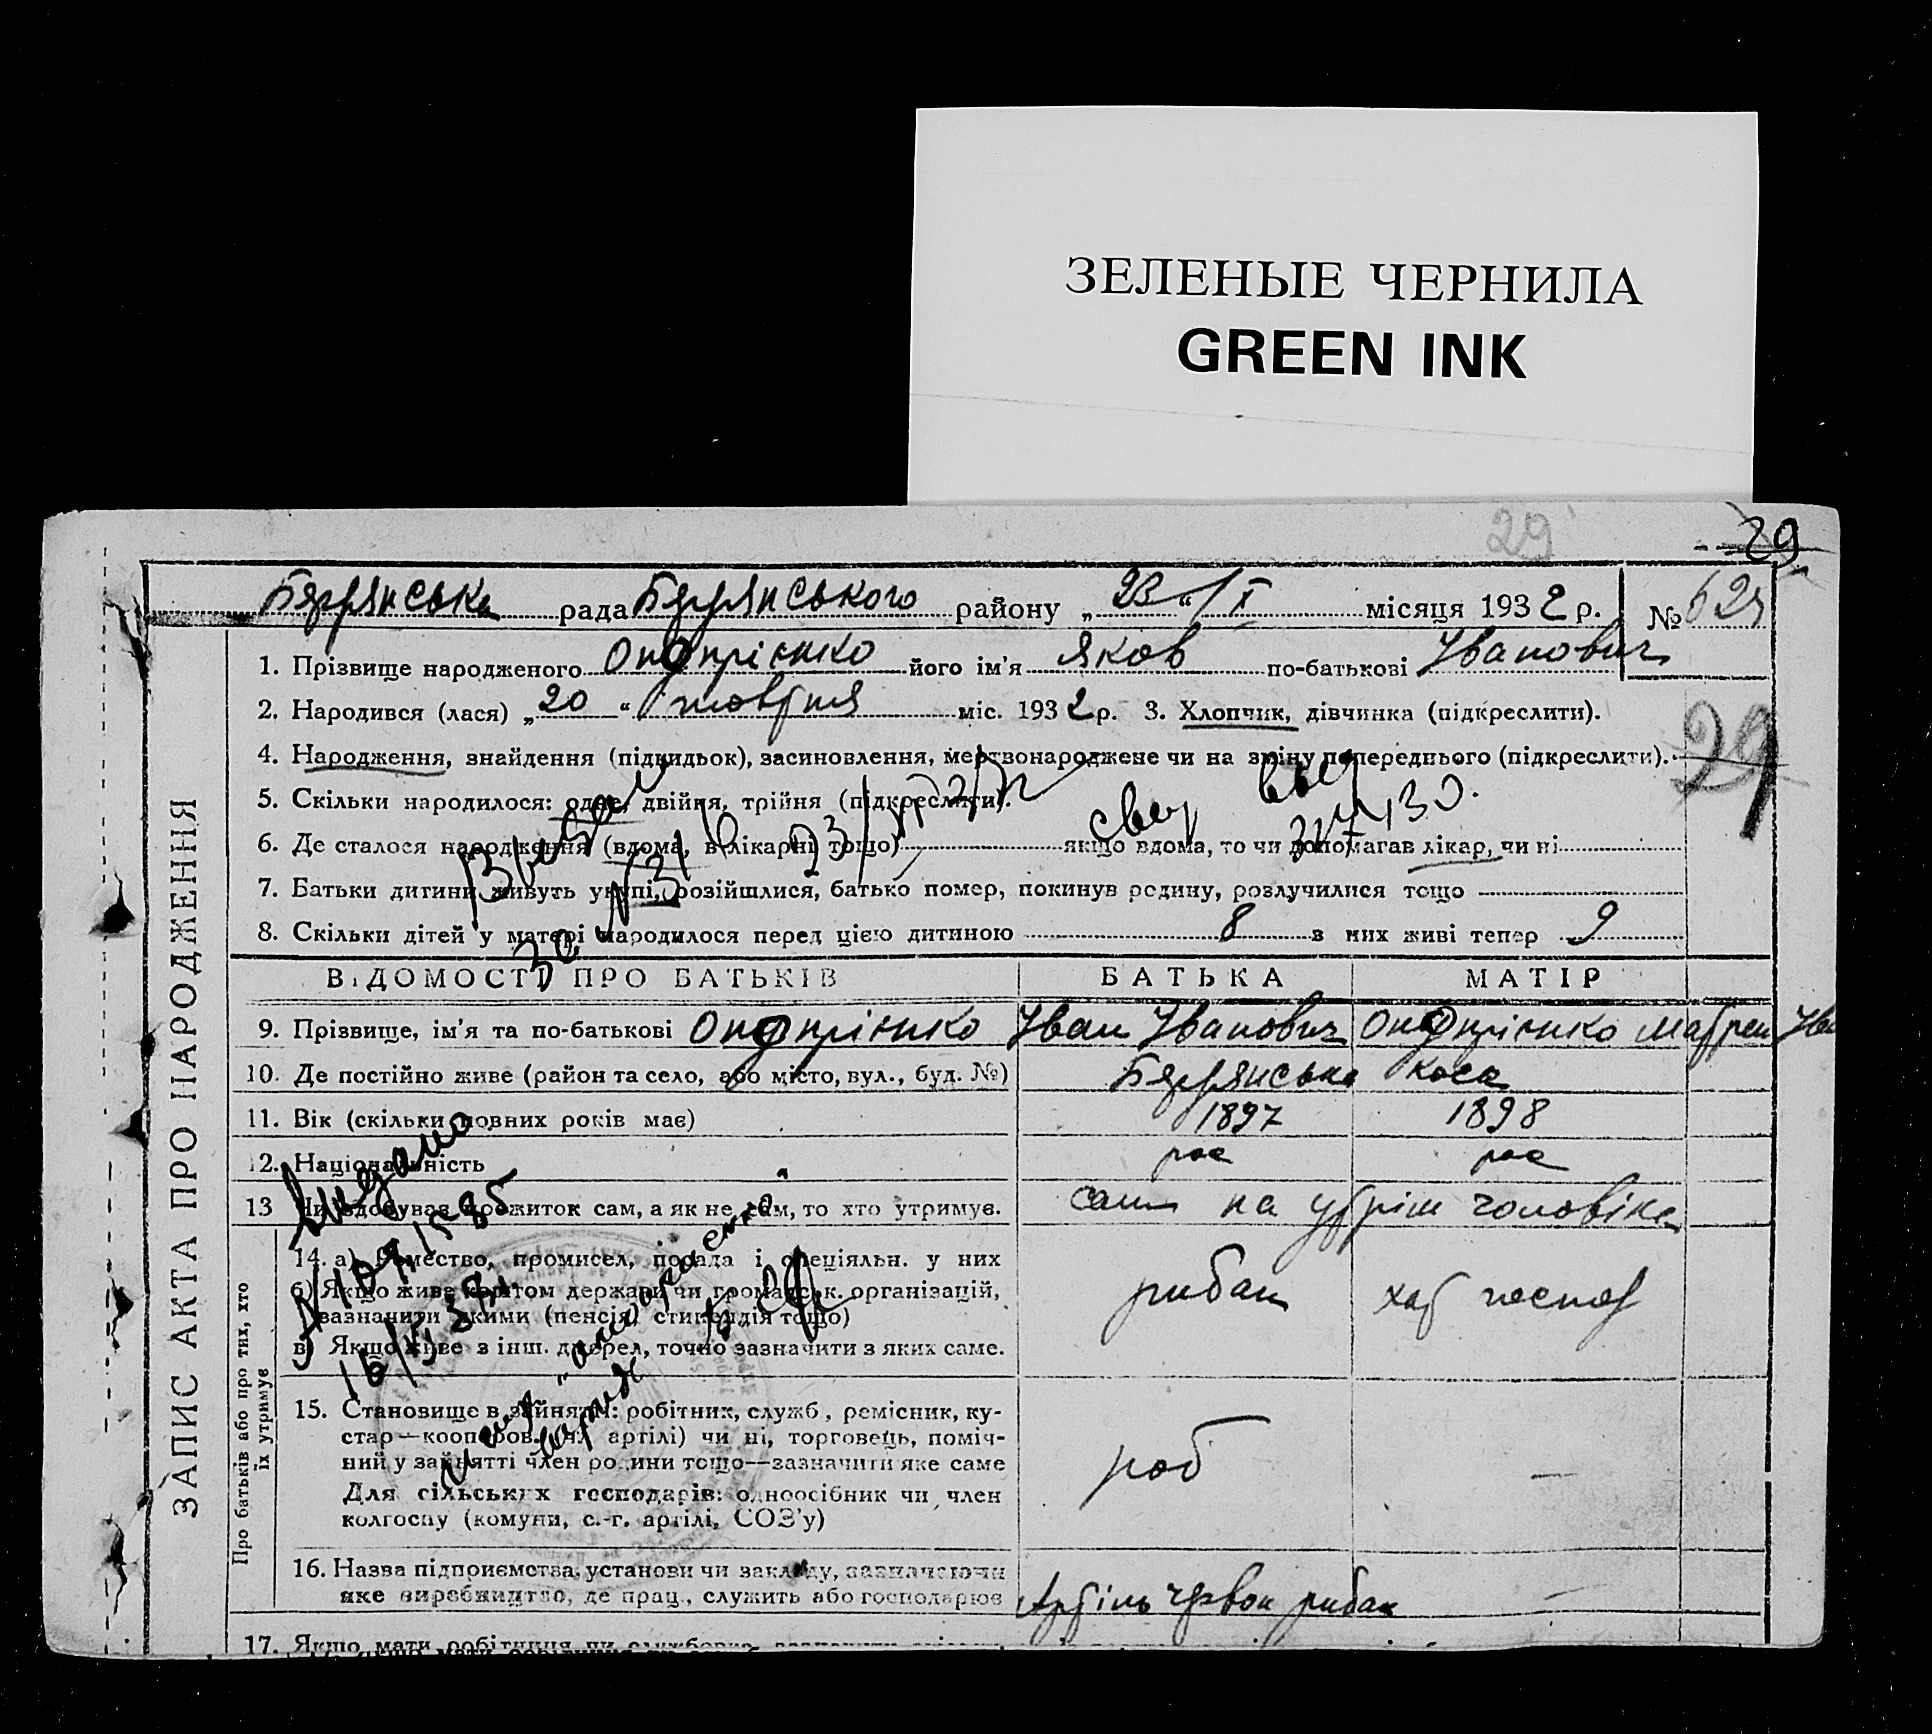 ЗЕЛЕНЫЕ ЧЕРНИЛА
GREEN INK
29
29
Бердянська рада Бердянського району „23“ / X місяця 1932 р. № 625
1. Прізвище народженого Онопрієнко його ім'я Яков по-батькові Іванович
2. Народився (лася) „20“ жовтня міс. 1932 р. 3. Хлопчик, дівчинка (підкреслити).
29
4. Народження, знайдення (підкидьок), засиновлення, мертвонароджене чи на зміну попереднього (підкреслити).
5. Скільки народилося: одне, двійня, трійня (підкреслити).
6. Де сталося народження (вдома, в лікарні тощо) якщо вдома, то чи допомагав лікар, чи ні
7. Батьки дитини живуть укупі, розійшлися, батько помер, покинув родину, розлучилися тощо
8. Скільки дітей у матері народилося перед цією дитиною 8 з них живі тепер 9
ВІДОМОСТІ ПРО БАТЬКІВ БАТЬКА МАТІР
9. Прізвище, ім'я та по-батькові Онопрієнко Іван Іванович Онопрієнко Мотрен Ів
10. Де постійно живе (район та село, або місто, вул., буд. №) Бердянська коса
11. Вік (скільки повних років має) 1897 1898
12. Національність рос рос
13 Чи здобував прожиток сам, а як не сам, то хто утримує. сам на утрім чоловіка
14. а) Ремество, промисел, посада і спеціяльн. у них рибак хат господ
б) Якщо живе коштом держави чи громадськ. організацій,
зазначити якими (пенсія, стипендія тощо)
в) Якщо живе з інш. джерел, точно зазначити з яких саме.
15. Становище в зайнятті: робітник, служб, ремісник, ку-
стар—кооперов. (чл. артілі) чи ні, торговець, поміч-
ний у зайнятті член родини тощо—зазначити яке саме роб —
Для сільських господарів: одноосібник чи член
колгоспу (комуни, с.-г. артілі, СОЗ'у)
16. Назва підприємства, установи чи закладу, зазначаючи
яке виробництво, де прац., служить або господарює Артіль червон рибак —
17. Якщо мати робітниця чи службовка
ЗАПИС АКТА ПРО НАРОДЖЕННЯ
Про батьків або про тих, хто
їх утримує
Видано